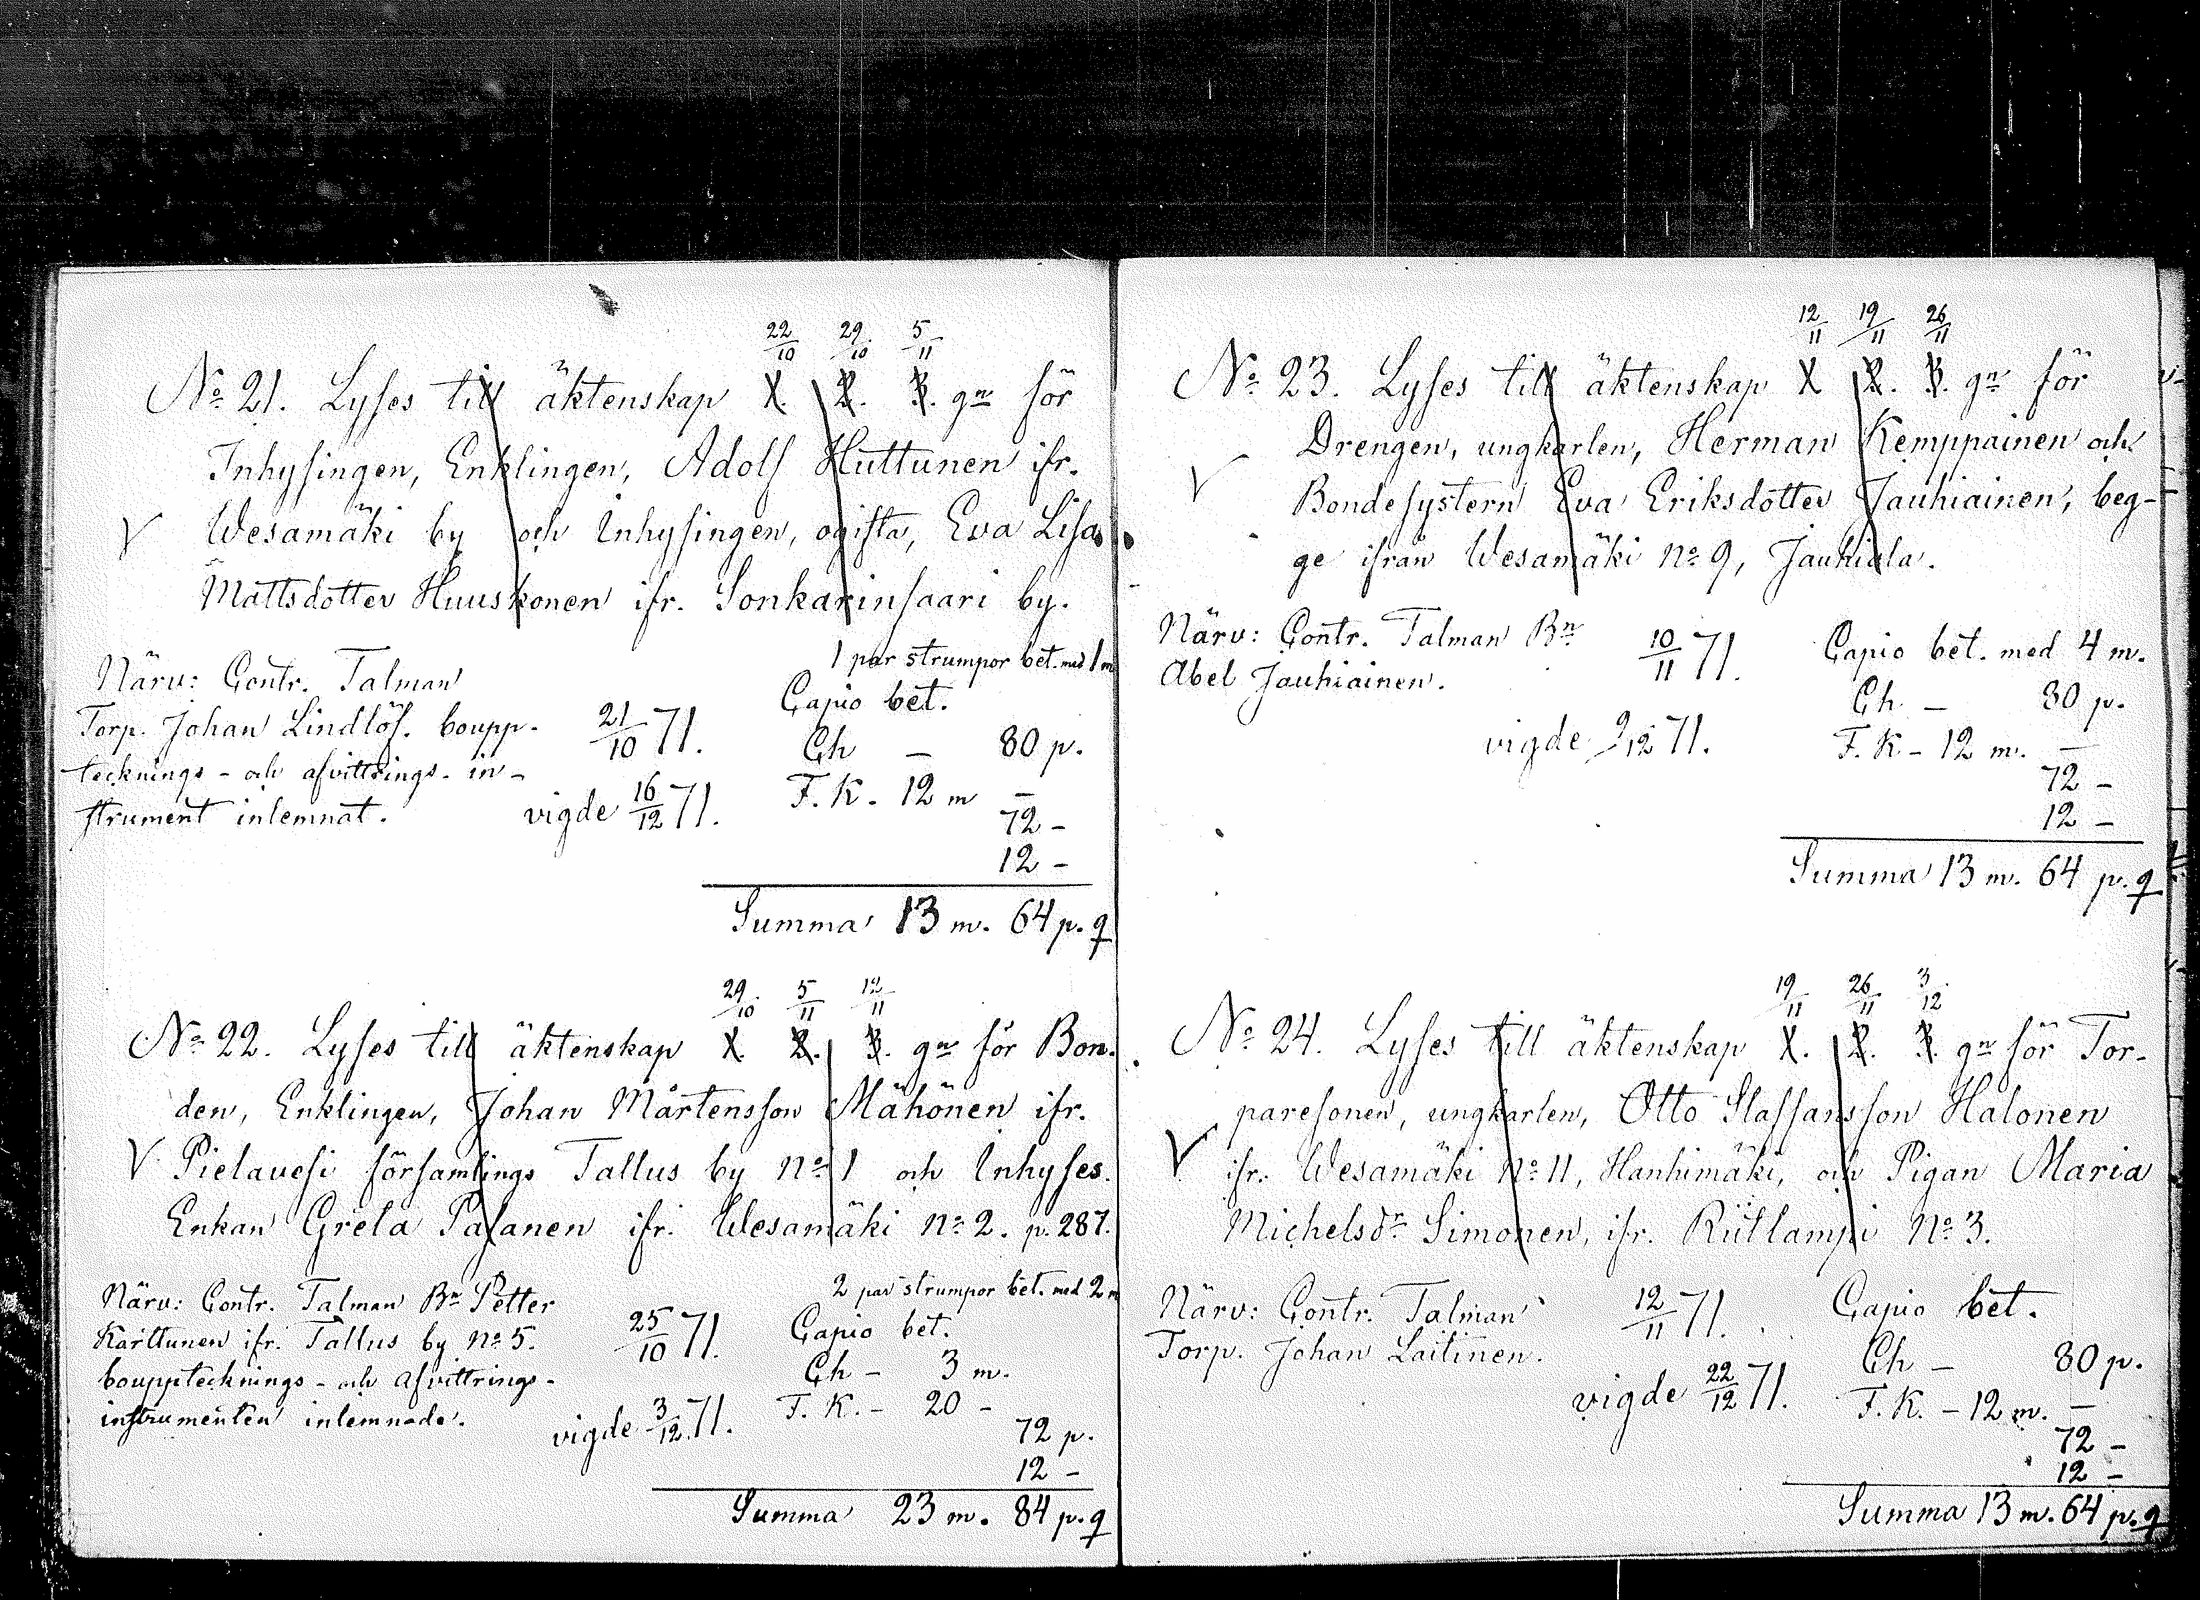 22/10 29/10 5/11
No 21. Lyses till äktenskap 1. 2. 3. gn för
Inhysingen, Enklingen, Adolf Huttunen ifr.
V Wesamäki by och Inhysingen, ogifta, Eva Lisa
Mattsdotter Huuskonen ifr. Sonkarinsaari by.
Närv: Contr. Talman
Torp. Johan Lindlöf. boupp-
tecknings- och afvittrings- in-
strument inlemnat.
21/10 71.
vigde 16/12 71.
1 par strumpor bet. med 1 m
Capio bet.
Ch — 80 p.
F. K. 12 m —
72 —
12 —
Summa 13 m. 64 p.
29/10 5/11 12/11
No 22. Lyses till äktenskap 1. 2. 3. gn för Bon-
den, Enklingen, Johan Mårtensson Mähönen ifr.
V Pielavesi församlings Tallus by No 1 och Inhyses.
Enkan Greta Pasanen ifr. Wesamäki No 2. p. 287.
Närv: Contr. Talman Bn Petter
Karttunen ifr. Tallus by No 5.
boupptecknings- och afvittrings-
instrumenten inlemnade.
25/10 71.
vigde 3/12 71.
2 par strumpor bet. med 2 m
Capio bet.
Ch — 3 m.
F. K. — 20 —
72 p.
12 —
Summa 23 m. 84 p.
12/11 19/11 26/11
No 23. Lyses till äktenskap 1 2. 3. gn för
Drengen, ungkarlen, Herman Kemppainen och
V Bondesystern Eva Eriksdotter Jauhiainen, beg-
ge ifrån Wesamäki No 9, Jauhiala.
Närv: Contr. Talman Bn
Abel Jauhiainen.
10/11 71.
vigde 9/12 71.
Capio bet. med 4 m.
Ch — 80 p.
F. K — 12 m. —
72 —
12 —
Summa 13 m. 64 p.
19/11 26/11 3/12
No 24. Lyses till äktenskap 1. 2. 3. gn för Tor-
paresonen, ungkarlen, Otto Staffansson Halonen
V ifr. Wesamäki No 11, Hanhimäki, och Pigan Maria
Michelsdr Simonen, ifr. Rutlampi No 3.
Närv: Contr. Talman
Torp. Johan Laitinen.
12/11 71.
vigde 22/12 71.
Capio bet.
Ch — 80 p.
F. K. — 12 m. —
72 —
12 —
Summa 13 m. 64 p.